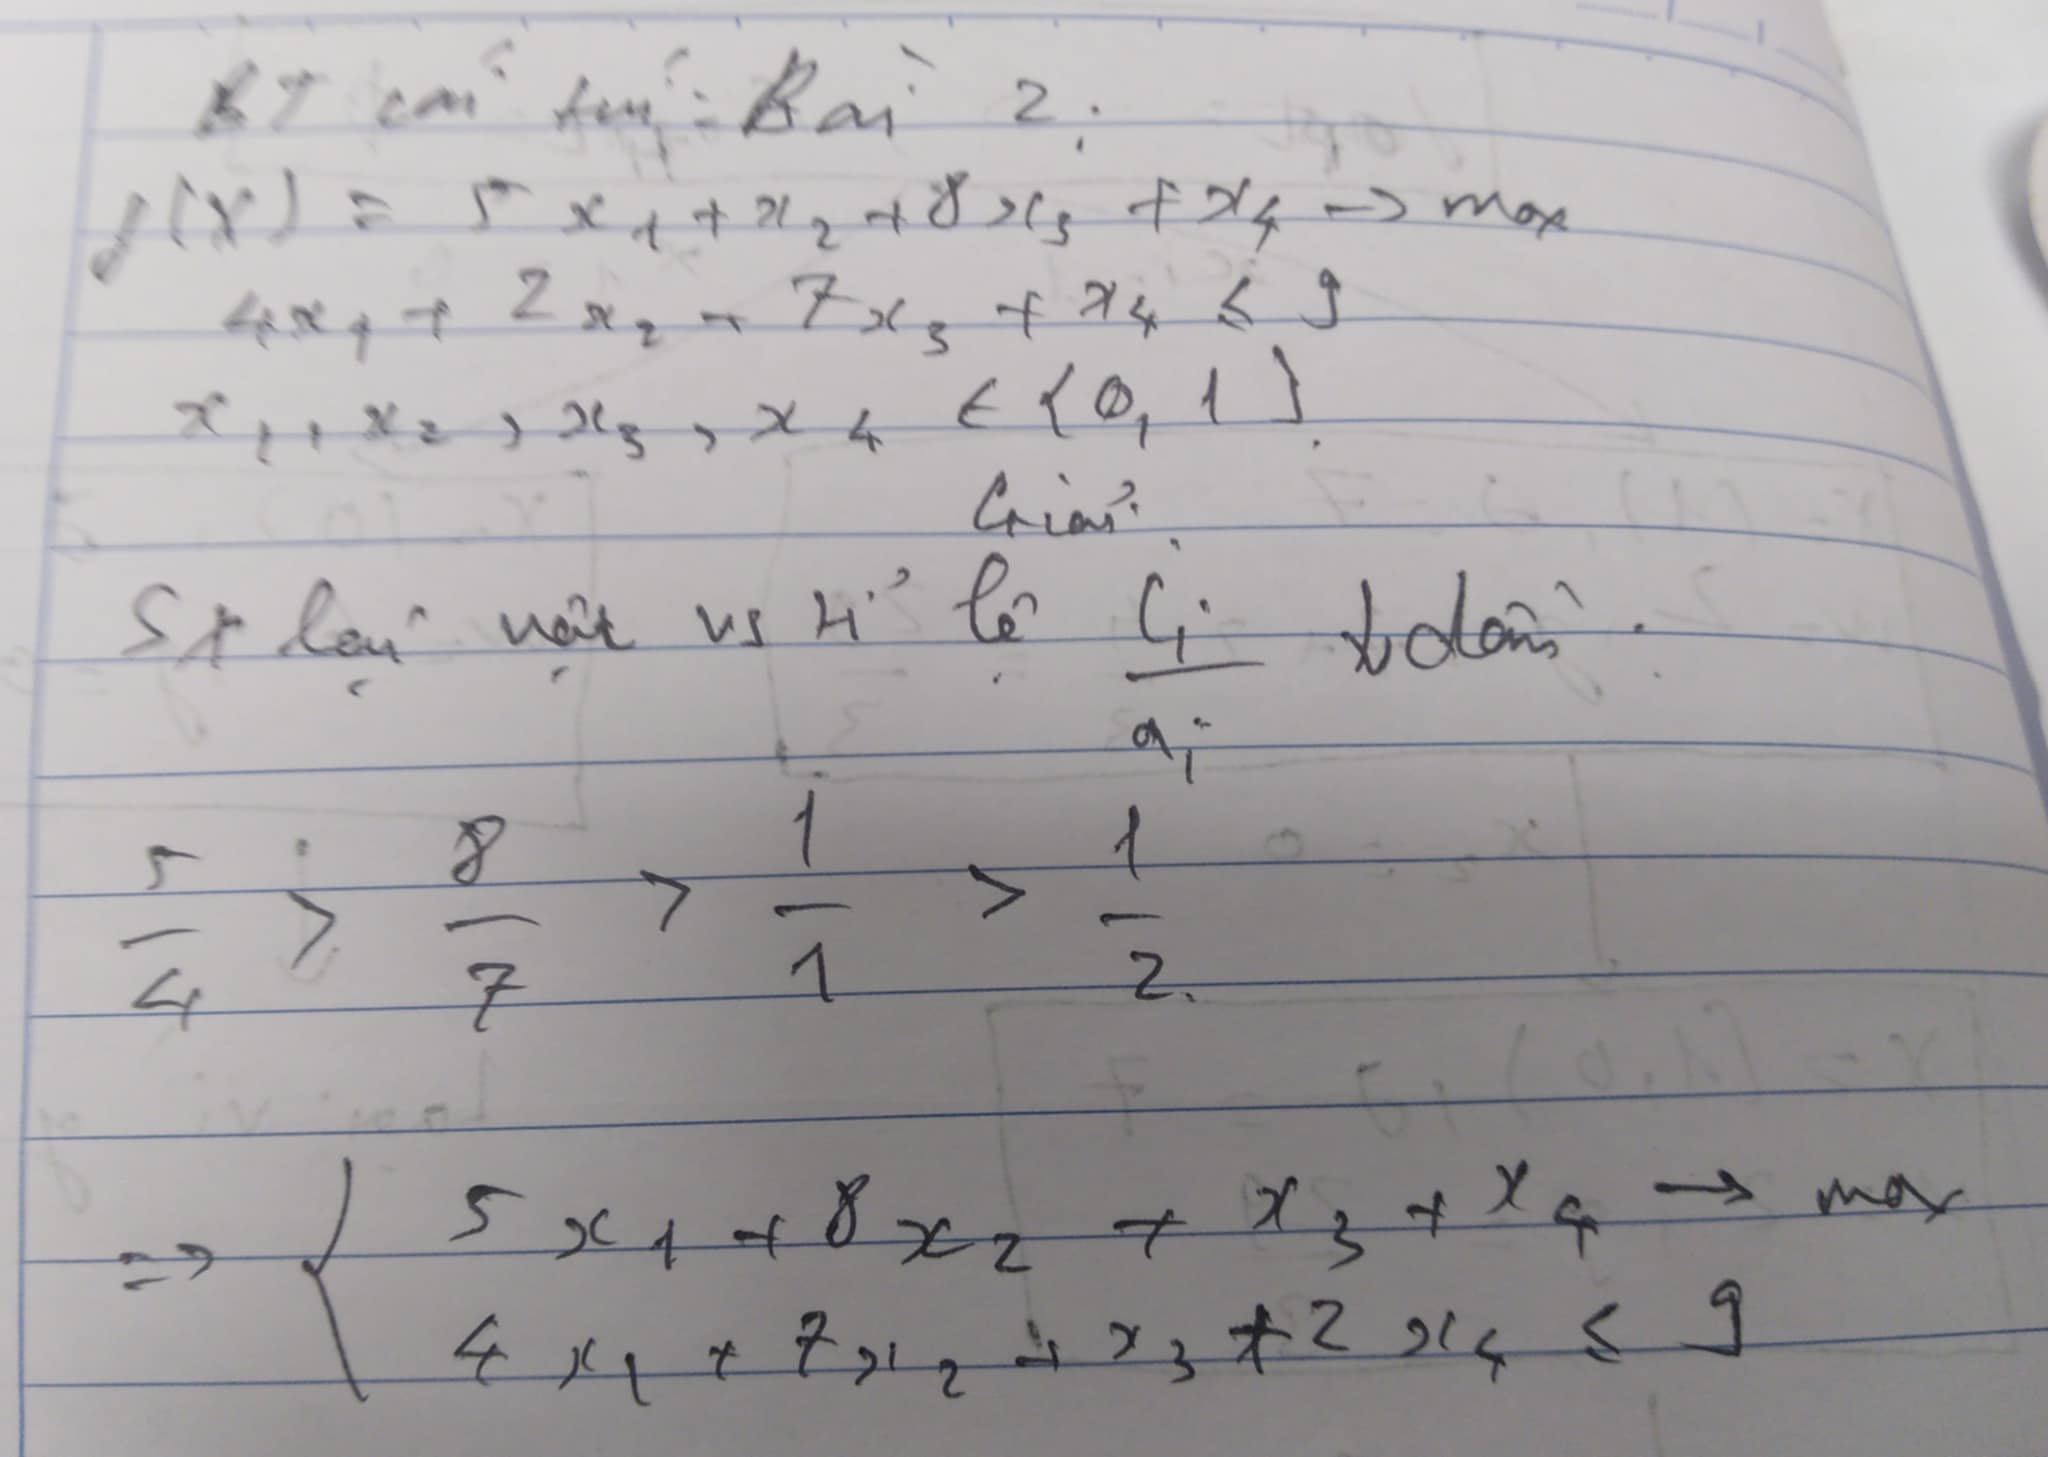 BT cái túi: Bài 2:
f(x) = 5x₁ + x₂ + 8x₃ + x₄ → max
4x₁ + 2x₂ + 7x₃ + x₄ ≤ 9
x₁, x₂, x₃, x₄ ∈ {0, 1}.
Giải:
SX lại vật vs tỉ lệ cⱼ/aⱼ ↓ dần.
5/4 > 8/7 > 1/1 > 1/2.
⇒ { 5x₁ + 8x₂ + x₃ + x₄ → max
4x₁ + 7x₂ + x₃ + 2x₄ ≤ 9